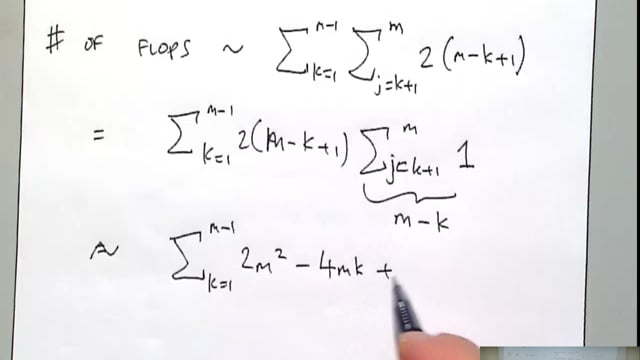 # OF FLOPS ~ ∑_{k=1}^{m-1} ∑_{j=k+1}^{m} 2(m-k+1)
= ∑_{k=1}^{m-1} 2(m-k+1) ∑_{j=k+1}^{m} 1
m-k
~ ∑_{k=1}^{m-1} 2m² - 4mk +